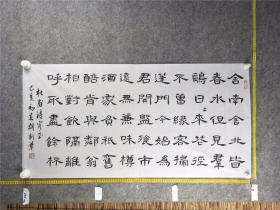 舍南舍北皆
春水但見羣
鷗日〻來花徑
不曾緣客掃
蓬門今始為
君開盤飧市
遠無兼味樽
酒家貧只舊
醅肯與鄰翁
相對飲隔籬
呼取盡餘杯
杜甫詩客至
己亥初春